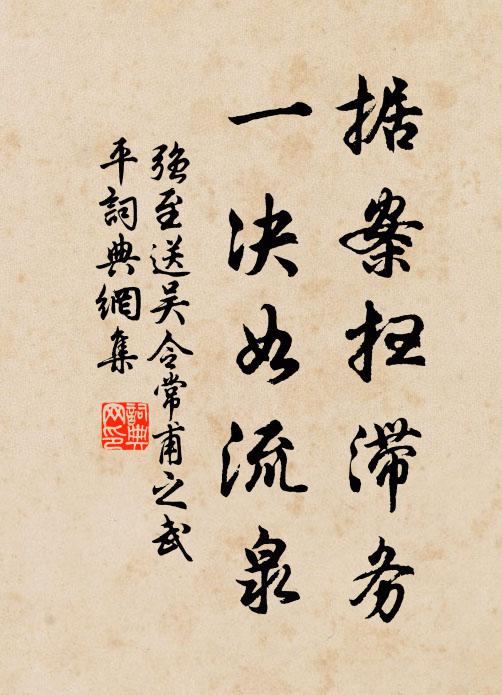 据案扫滞务
一决如流泉
强至送吴令常甫之武
平詞典網集
詞典网印